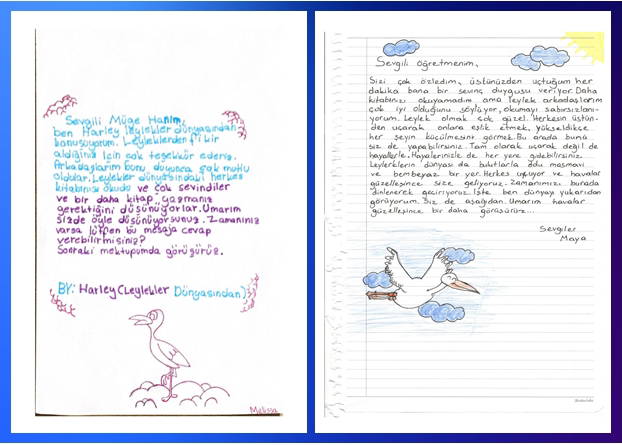 Sevgili Müge Hanım,
ben Harley leylekler dünyasından
konuşuyorum. Leyleklerden fikir
aldığınız için çok teşekkür ederiz.
Arkadaşlarım bunu duyunca çok mutlu
oldular. Leylekler dünyasındaki herkes
kitabınızı okudu ve çok sevindiler
ve bir daha kitap yazmanız
gerektiğini düşünüyorlar. Umarım
sizde öyle düşünüyorsunuz. Zamanınız
varsa lütfen bu mesaja cevap
verebilirmisiniz?
Sonraki mektupumda görüşürüz.
BY: Harley (Leylekler Dünyasından)
Melissa
Sevgili öğretmenim,
Sizi çok özledim, üstünüzden uçtuğum her
dakika bana bir sevinç duygusu veriyor. Daha
kitabınızı okuyamadım ama leylek arkadaşlarım
çok iyi olduğunu söylüyor, okumayı sabırsızlanı-
yorum. Leylek olmak çok güzel. Herkesin üstün-
den uçarak onlara eşlik etmek, yükseldikçe
her şeyin küçülmesini görmek. Bu arada bunu
siz de yapabilirsiniz. Tam olarak uçarak değil de
hayallerle. Hayallerinizle de her yere gidebilirsiniz.
Leyleklerin dünyası da bulutlarla dolu masmavi
ve bembeyaz bir yer. Herkes uçuyor ve havalar
güzelleşince size geliyoruz. Zamanımızı burada
dinlenerek geçiriyoruz. İşte ben dünyayı yukarıdan
görüyorum. Siz de aşağıdan. Umarım havalar
güzelleşince bir daha görüşürüz...
Sevgiler
Maya